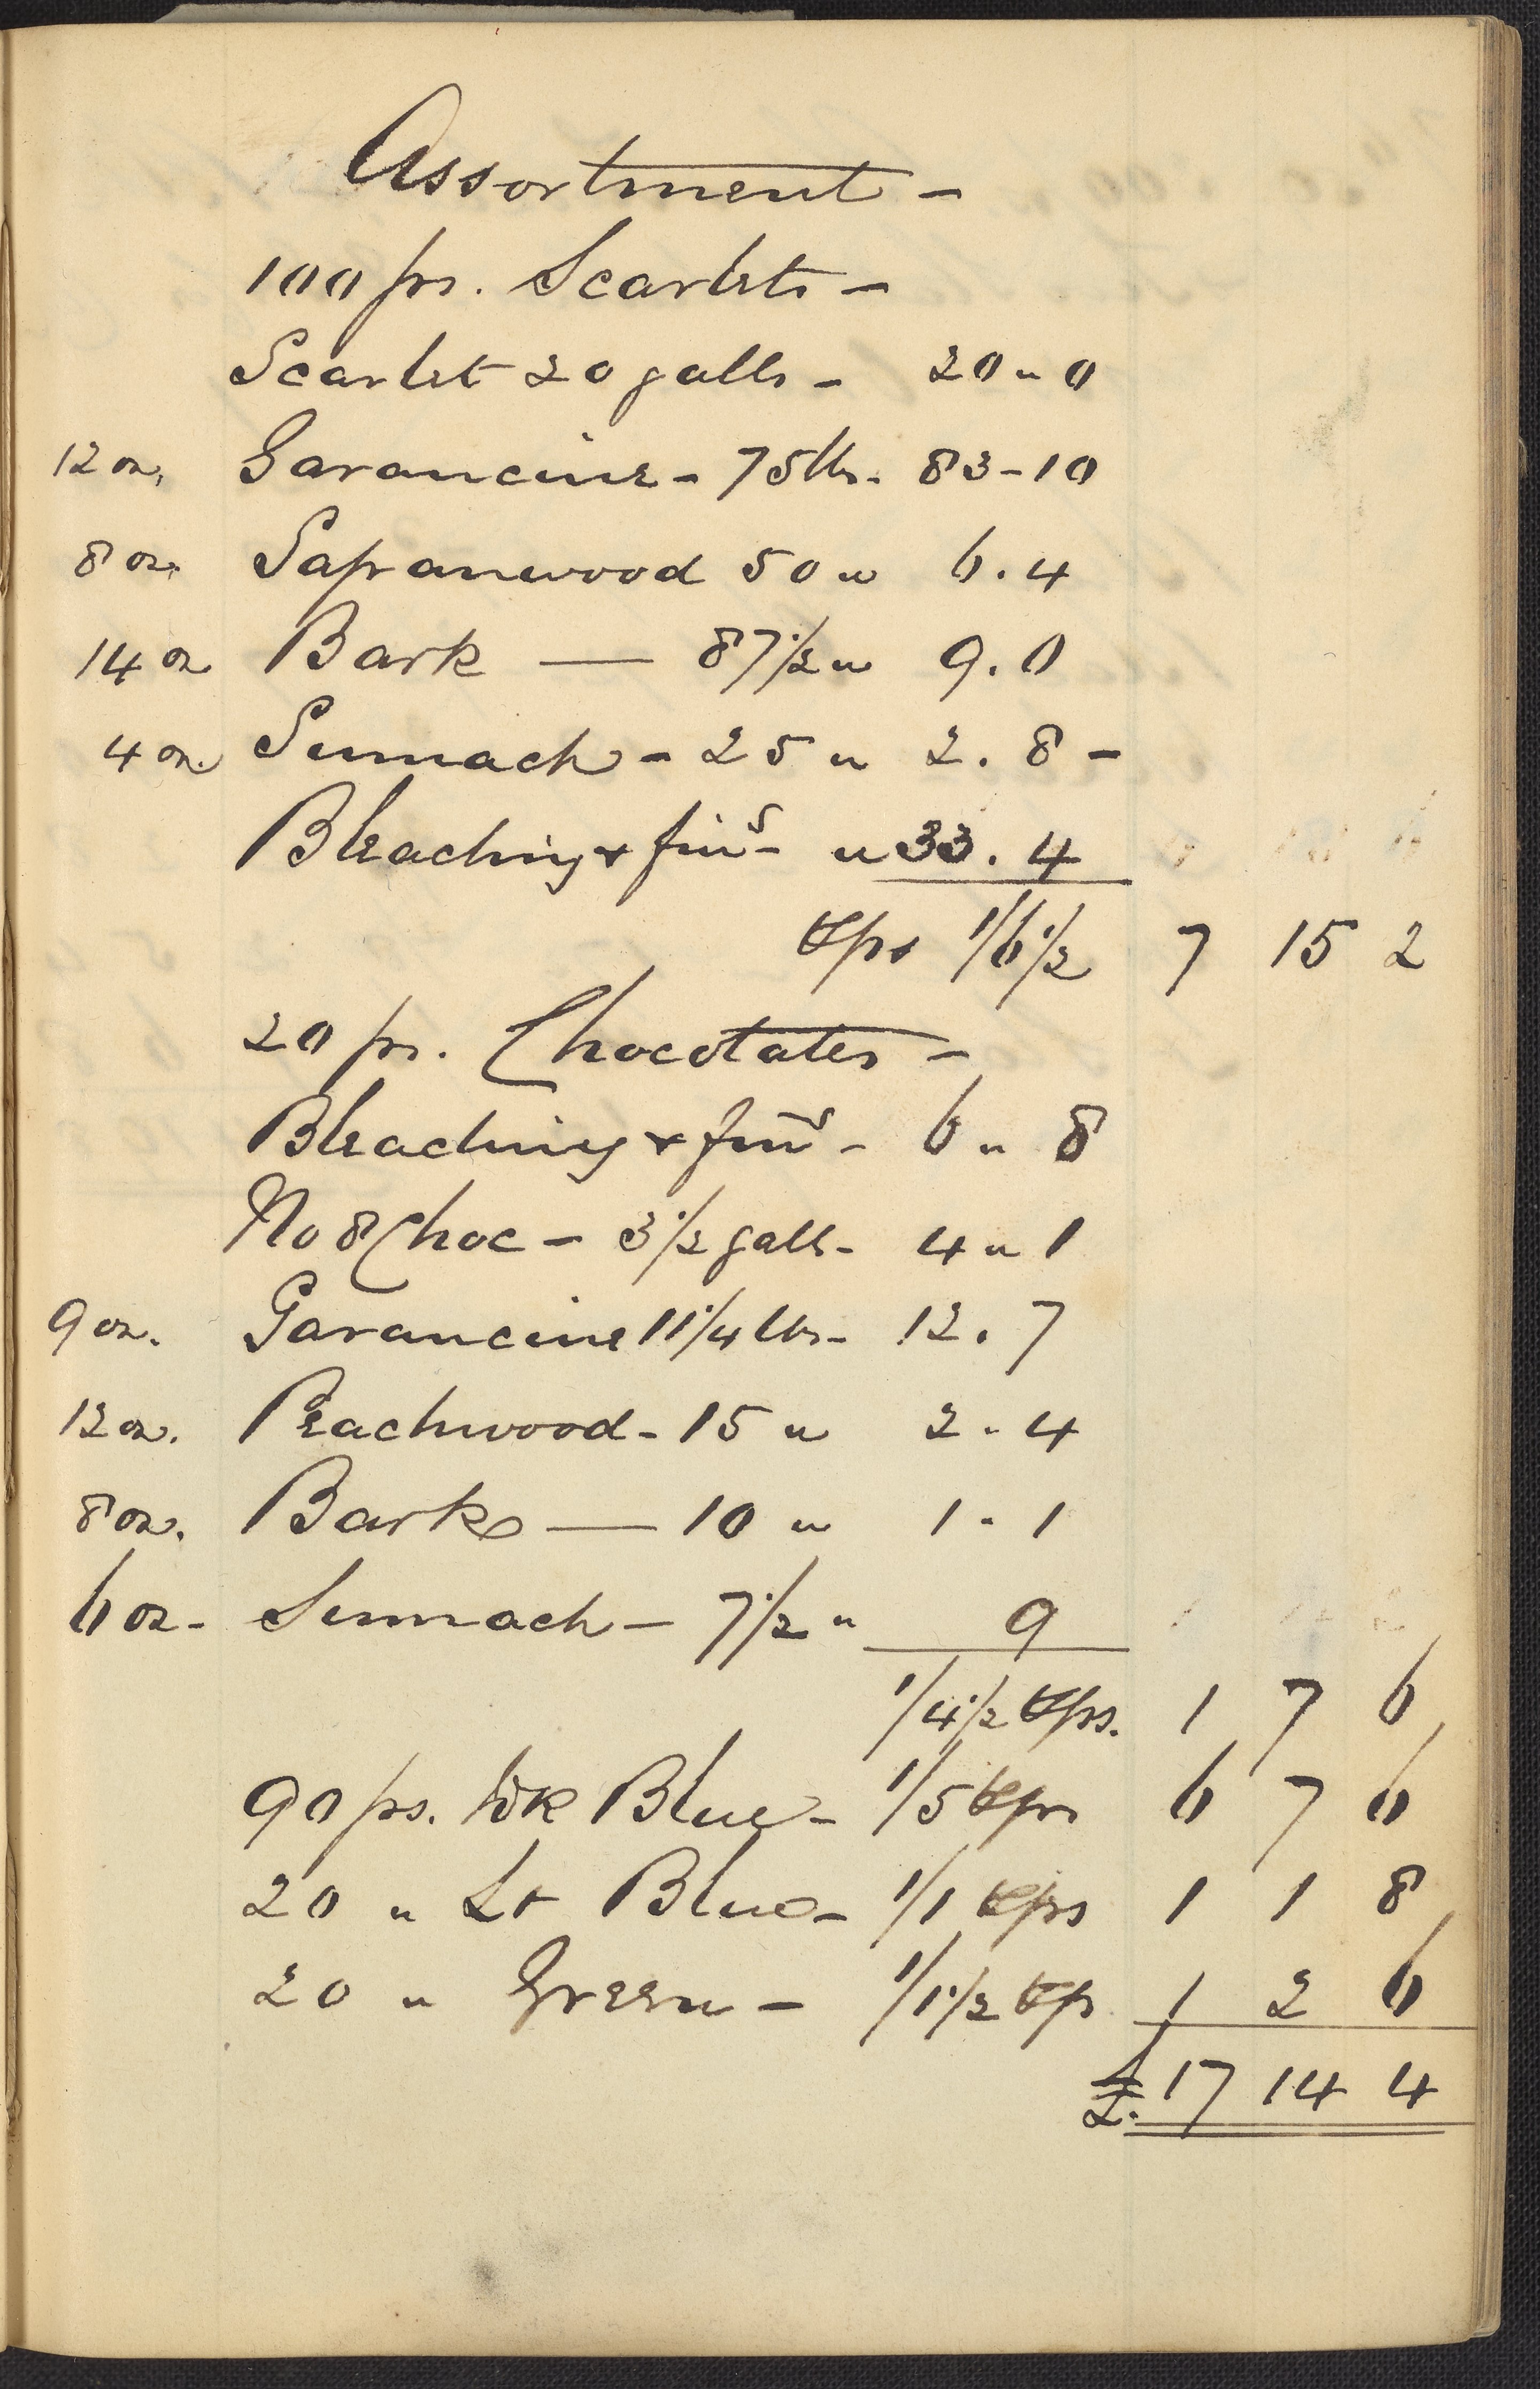 Assortment -
100 prs. Scarlets -
Scarlet 20 galls - 20 " 0
12 oz. Garancine - 75 lbs. 83 - 10
8 oz. Sapanwood 50 " 6 . 4
14 oz Bark — 87 1/2 " 9 . 0
4 oz. Sumach - 25 " 2 . 8 -
Bleaching & fins - " 33 . 4
1/6 1/2 7 15 2
20 prs. Chocolates -
Bleaching & fins - 6 " 8
No 8 Choc - 3 1/2 galls - 4 " 1
9 oz. Garancine 11 1/4 lbs - 12 . 7
12 oz. Peachwood - 15 " 2 - 4
8 oz. Bark — 10 " 1 - 1
6 oz - Sumach - 7 1/2 " 9
1/4 1/2 1 7 6
90 prs. Dk Blue - 1/5 6 7 6
20 " Lt Blue - 1/1 1 1 8
20 " Green - 1/1 1/2 1 2 6
£. 17 14 4